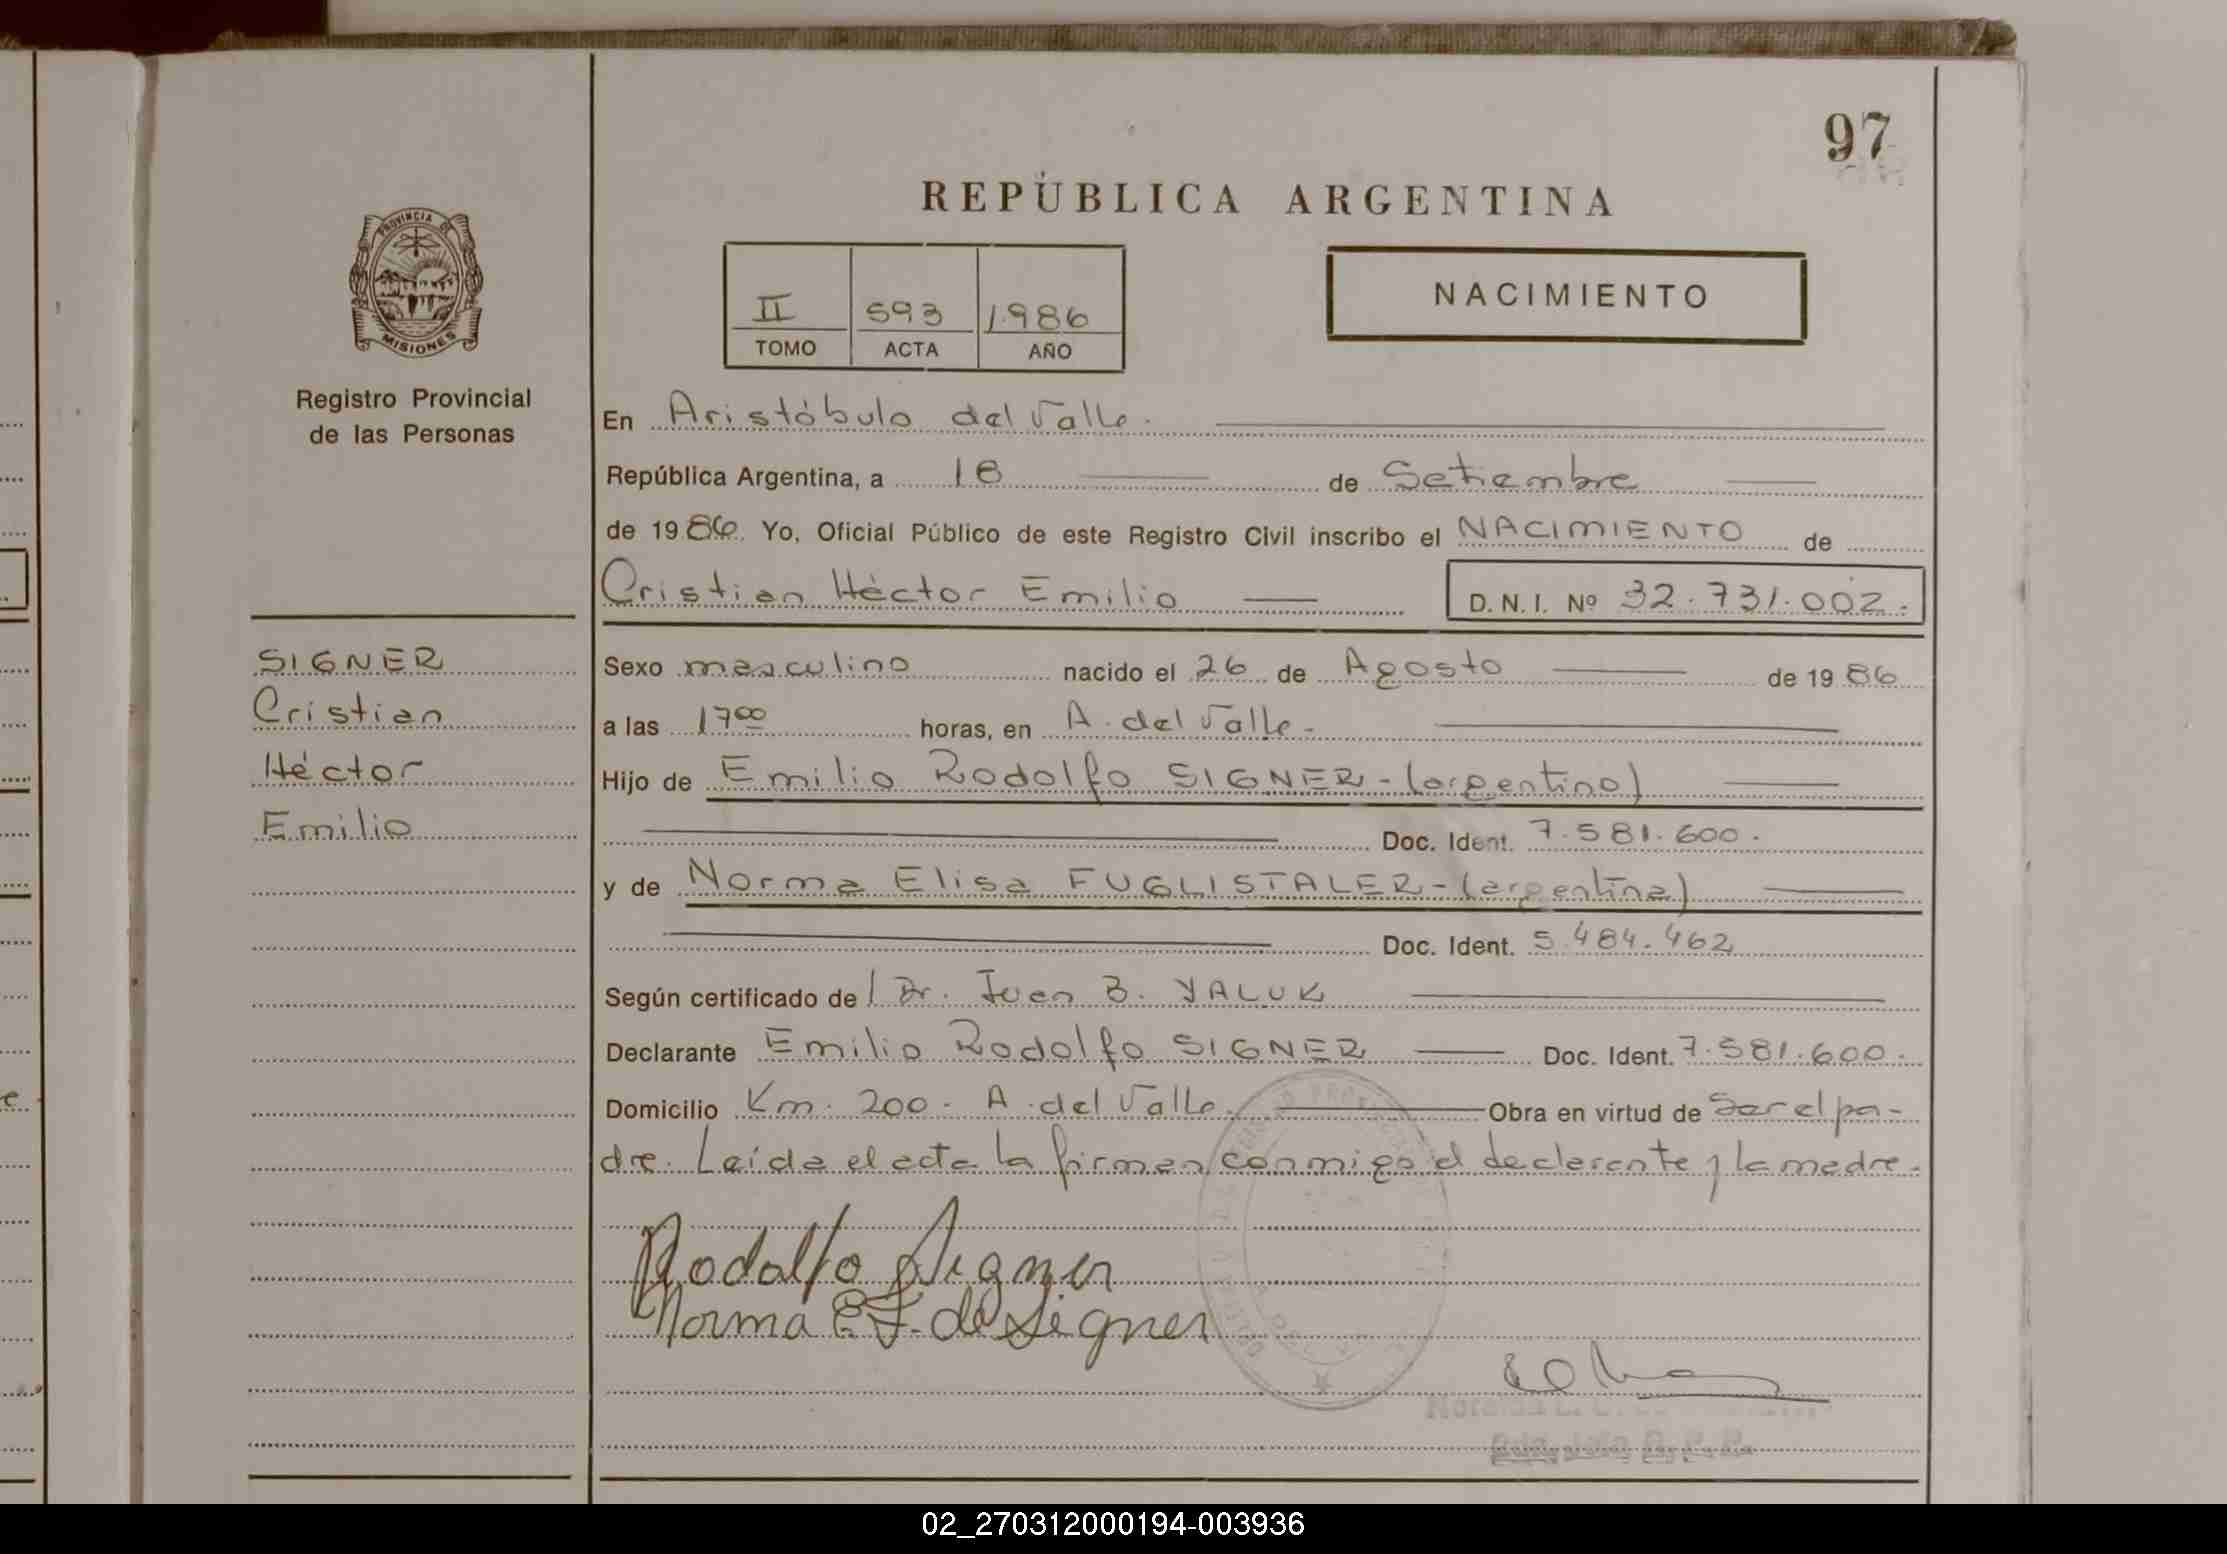 97
REPÚBLICA ARGENTINA
PROVINCIA DE
MISIONES
Registro Provincial
de las Personas
II 593 1986
TOMO ACTA AÑO
NACIMIENTO
En Aristóbulo del Valle.
República Argentina, a 18 de Setiembre
de 1986. Yo, Oficial Público de este Registro Civil inscribo el NACIMIENTO de
Cristian Héctor Emilio D. N. I. Nº 32.731.002.
SIGNER
Cristian
Héctor
Emilio
Sexo masculino nacido el 26 de Agosto de 1986
a las 17 00 horas, en A. del Valle.
Hijo de Emilio Rodolfo SIGNER - (argentino)
Doc. Ident. 7.581.600.
y de Norma Elisa FUGLISTALER - (argentina)
Doc. Ident. 5.484.462
Según certificado de Dr. Juan B. YALUK
Declarante Emilio Rodolfo SIGNER Doc. Ident. 7.581.600.
Domicilio Km. 200 - A. del Valle. Obra en virtud de Ser el pa-
dre. Leída el acta la firman conmigo el declarante y la madre.
Rodolfo Signer
Norma E F. de Signer
02_270312000194-003936